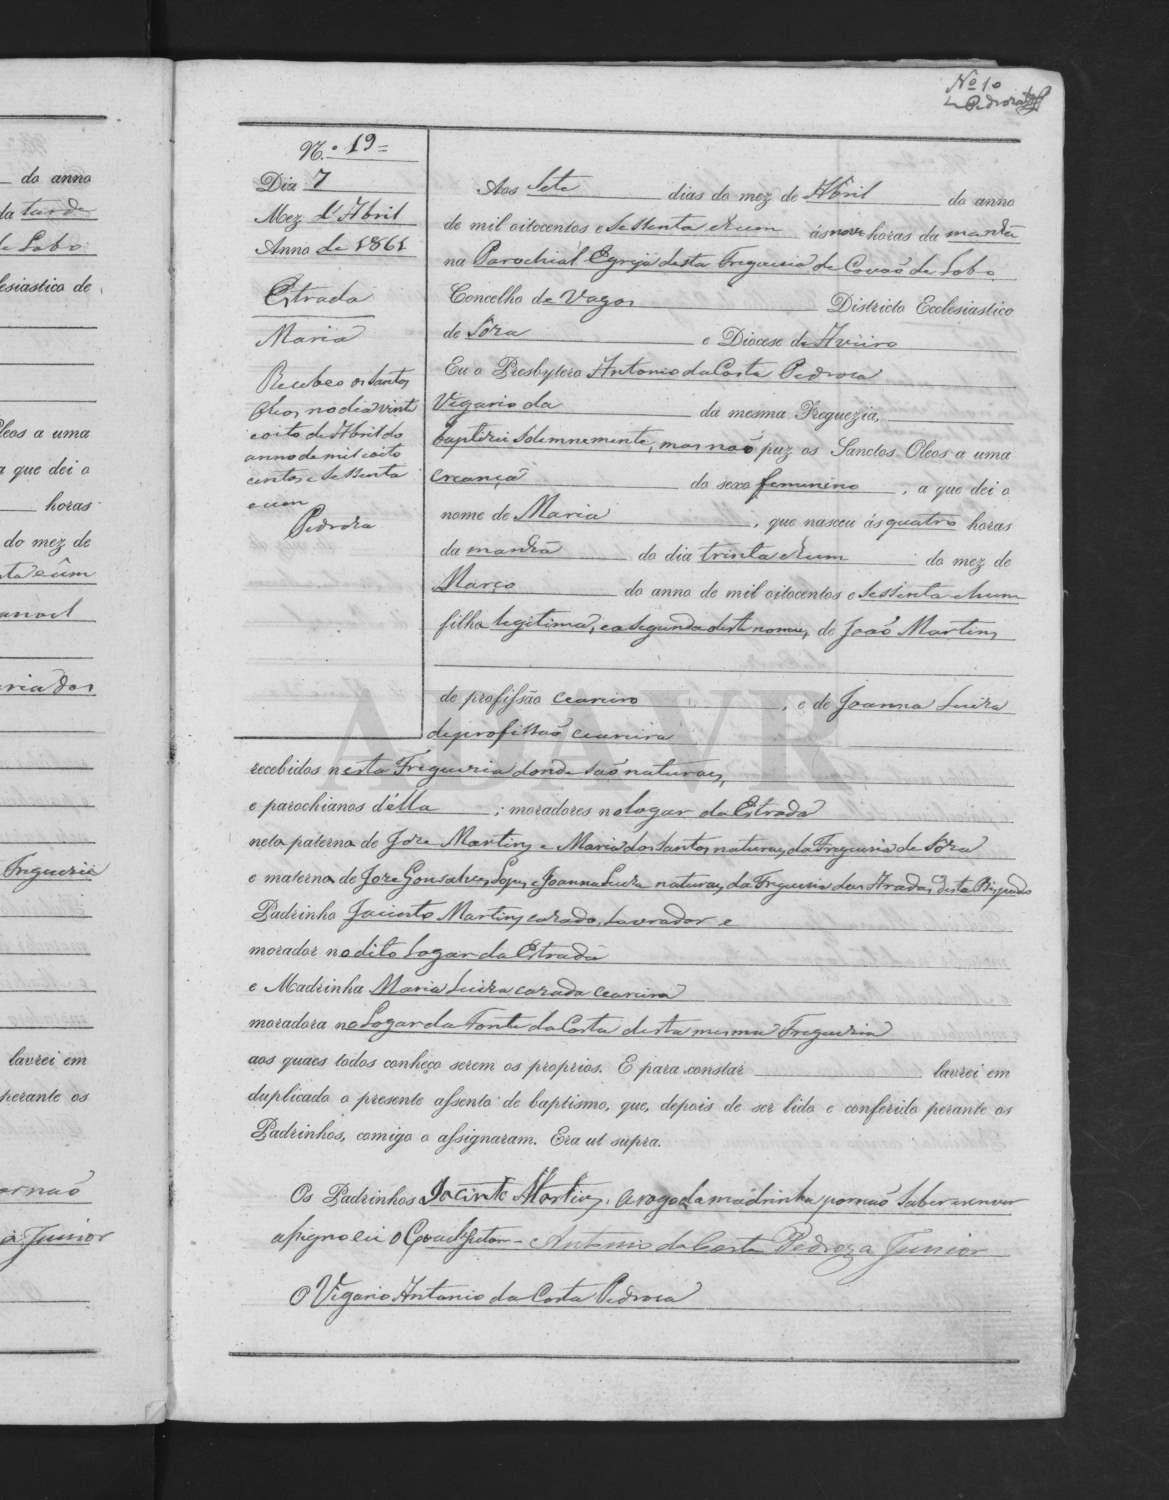 Nº 10
Pedroza
do anno
da tarde
de Sobo
esiastico de
Oleos a uma
a que dei o
horas
do mez de
nta e ûm
anoel
aria dos
Freguezia
lavrei em
perante os
por não
a Junior
N.º 19=
Dia 7
Mez d'Abril
Anno de 1861
Estrada
Maria
Recebeo os Santos
Oleos no dia vinte
e oito de Abril do
anno de mil e oito
centos e sessenta
e um
Pedroza
Aos Sete dias do mez de Abril do anno
de mil oitocentos e sessenta e hum ás nove horas da manhã
na Parochial Egreja desta Freguezia de Covaõ de Lobo
Concelho de Vagos Districto Ecclesiastico
de Sôza e Diocese de Aveiro
Eu o Presbytero Antonio da Costa Pedroza
Vigario da da mesma Freguezia,
baptizei solemnemente, mas naõ puz os Sanctos Oleos a uma
creança do sexo femenino, a que dei o
nome de Maria, que nasceu ás quatro horas
da manhã do dia trinta e hum do mez de
Março do anno de mil oitocentos e sessenta e hum
filha legitima, e a segunda deste nome, de Joaõ Martins
de profissão ceareiro, e de Joanna Luiza
de profissaõ ceareira
recebidos nesta Freguezia donde saõ naturaes,
e parochianos d'élla; moradores no logar da Estrada
neta paterna de Joze Martins e Maria dos Santos naturaes da Freguezia de Sôza
e materna de Joze Gonsalves e Joanna Luiza naturaes da Freguezia das Aradas deste Bispado
Padrinho Jacinto Martins cazado, Lavrador e
morador no dito Logar da Estrada
e Madrinha Maria Luiza cazada ceareira
moradora no Logar da Fonte da Costa desta mesma Freguezia
aos quaes todos conheço serem os proprios. E para constar lavrei em
duplicado o presente assento de baptismo, que, depois de ser lido e conferido perante os
Padrinhos, comigo o assignaram. Era ut supra.
Os Padrinhos Jacinto Martins. A rogo da madrinha por naõ saber escrever
assignei o Coadjutor - Antonio da Costa Pedroza Junior
O Vigario Antonio da Costa Pedroza
ADAVR